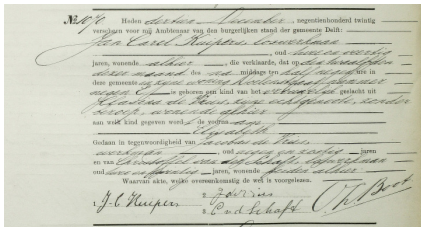 No. 1070 Heden dertien December negentienhonderd twintig
verscheen voor mij Ambtenaar van den burgerlijken stand der gemeente Delft:
Jan Carel Kuipers, loswerkman
, oud twee en veertig
jaren, wonende alhier, die verklaarde, dat op den twaalfden
dezer maand des na middags ten half negen ure in
deze gemeente in zijne woning nummer
negen is geboren een kind van het vrouwelijk geslacht uit
Klasina de Vries, zijne echtgenoote, zonder
beroep, wonende alhier
aan welk kind gegeven wordt de voornaam
Elizabeth
Gedaan in tegenwoordigheid van Jacobus de Vries,
werkman, oud negen en zestig jaren
en van Christoffel van der Schaft, werkman
oud jaren, wonende beiden alhier
Waarvan akte, welke overeenkomstig de wet is voorgelezen.
1. J. C. Kuipers 2. J de Vries
3. C v d Schaft Boot